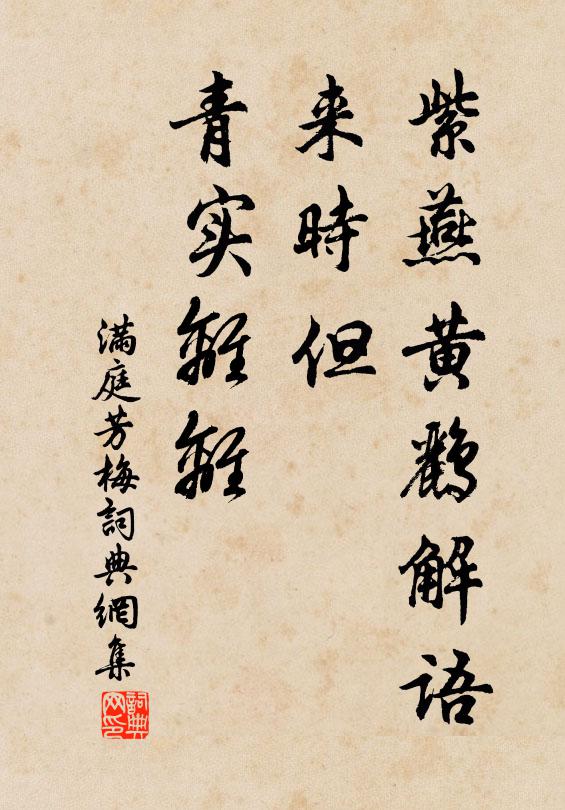 紫燕黄鹂解语
来時但
青实離離
满庭芳梅詞典網集
詞典网印